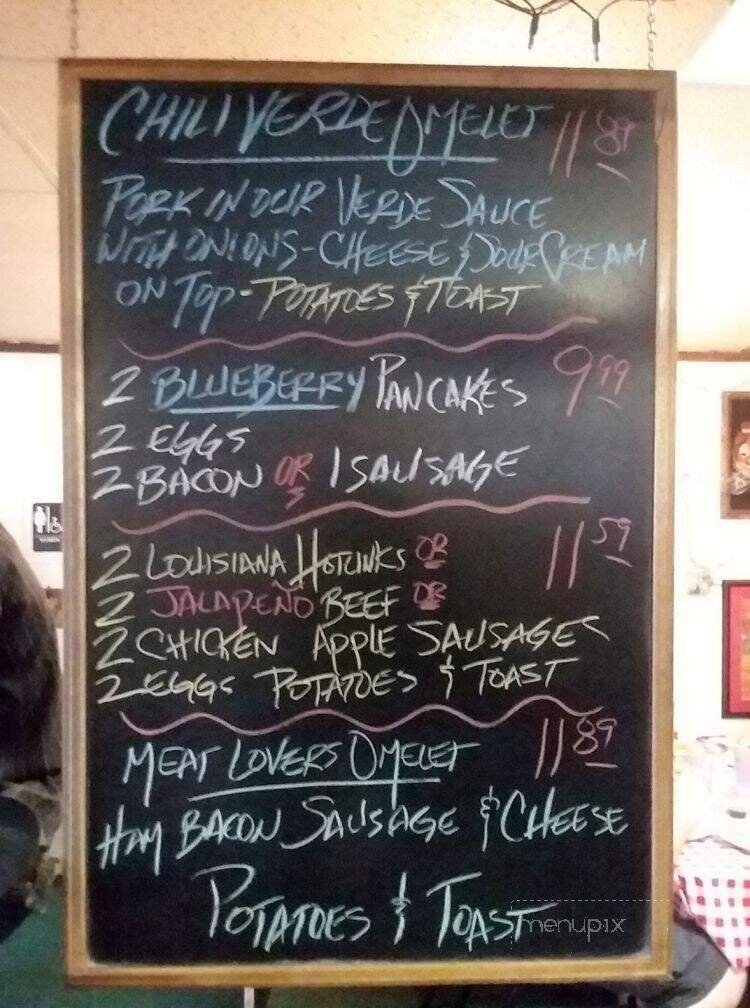 CHILI VERDE OMELET 11 89
PORK IN OUR VERDE SAUCE
WITH ONIONS - CHEESE & SOUR CREAM
ON TOP - POTATOES & TOAST
2 BLUEBERRY PANCAKES 9 99
2 EGGS
2 BACON OR 1 SAUSAGE
2 LOUISIANA HOTLINKS OR 11 59
2 JALAPEÑO BEEF OR
2 CHICKEN APPLE SAUSAGES
2 EGGS POTATOES & TOAST
MEAT LOVERS OMELET 11 89
HAM BACON SAUSAGE & CHEESE
POTATOES & TOAST
menupix